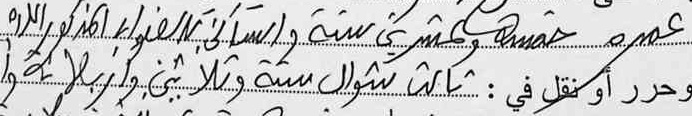 عمره خمسة وعشرين سنة والساكن بالعنوان المذكور أعلاه
وحرر أو نقل في : ثالث شوال ستة وثلاثين وأربعمائة وأ